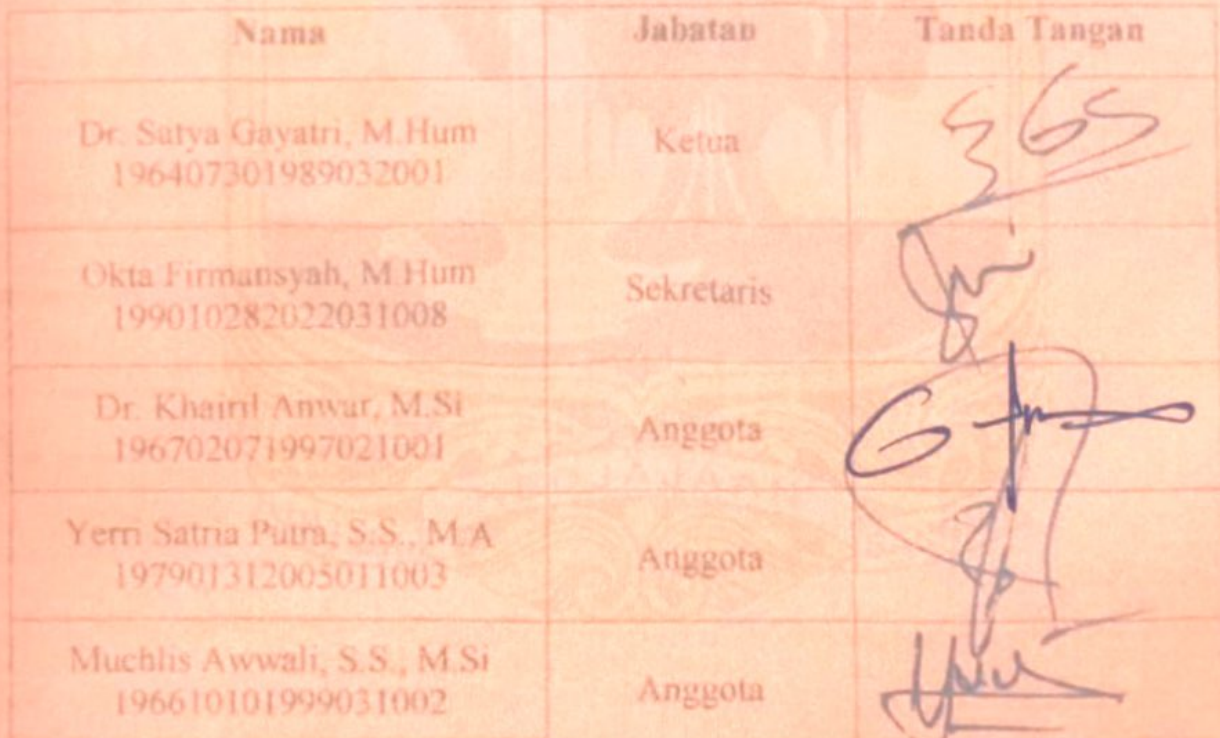 Nama Jabatan Tanda Tangan
Dr. Satya Gayatri, M.Hum
196407301989032001
Ketua
Okta Firmansyah, M.Hum
199010282022031008
Sekretaris
Dr. Khairil Anwar, M.Si
196702071997021001
Anggota
Yerri Satria Putra, S.S., M.A
197901312005011003
Anggota
Muchlis Awwali, S.S., M.Si
196610101999031002
Anggota